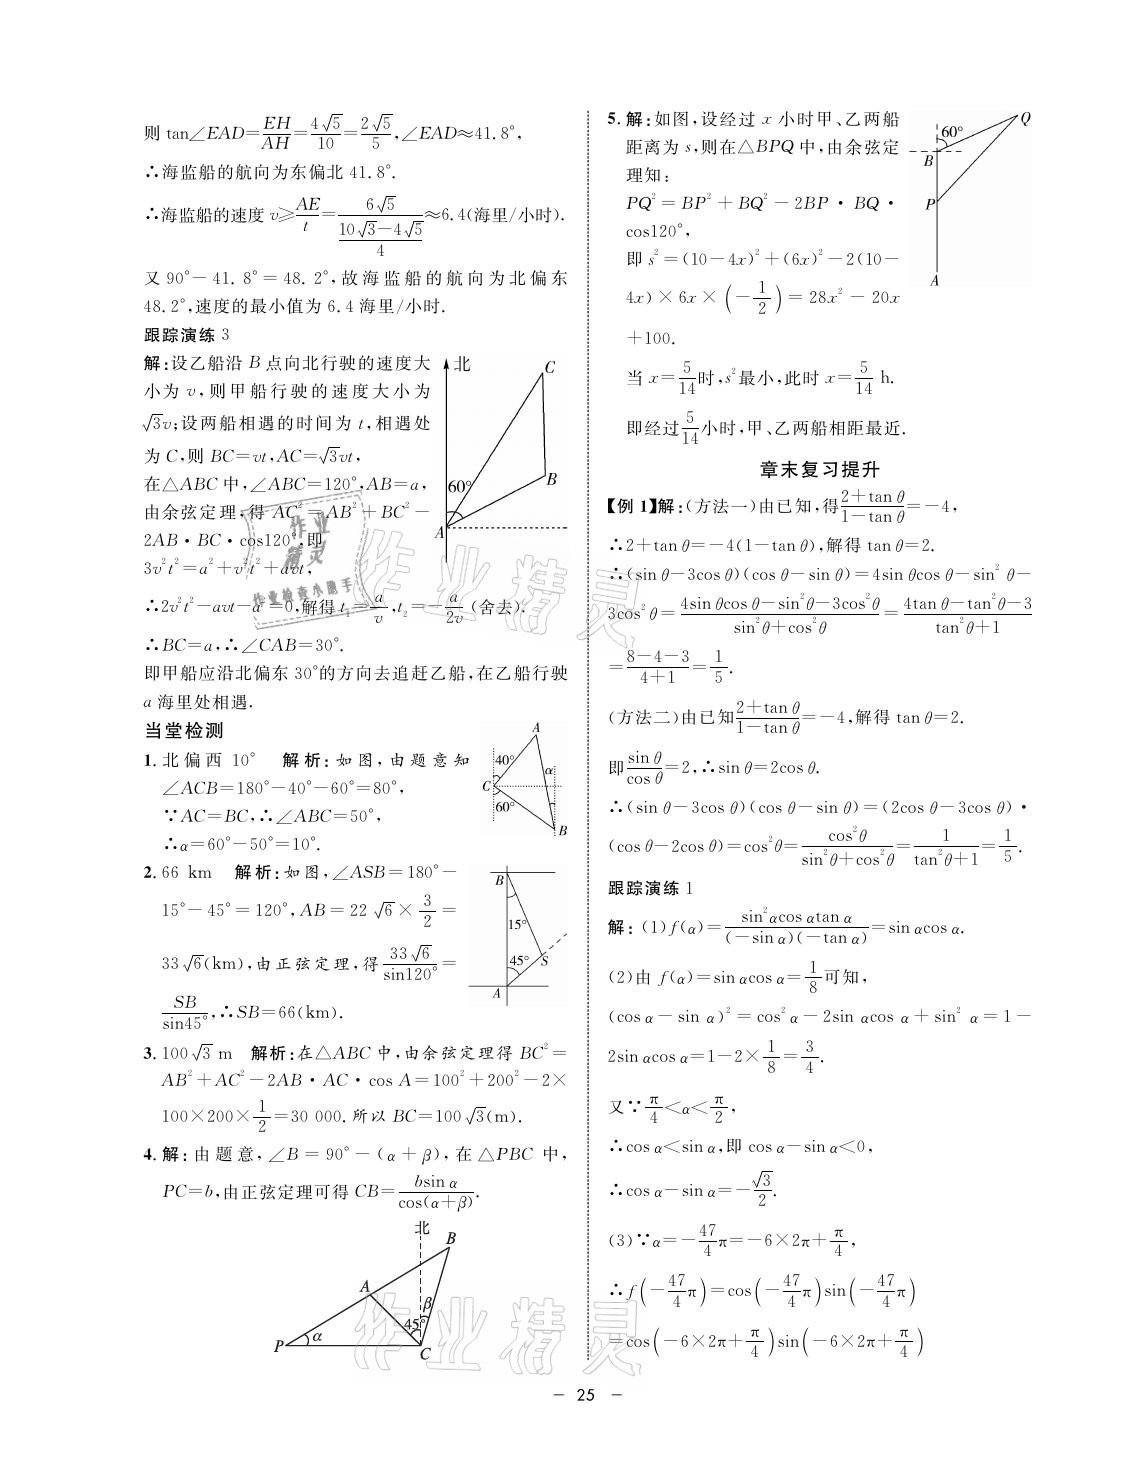 则 tan∠EAD=EH/AH=4√5/10=2√5/5,∠EAD≈41.8°,
∴海监船的航向为东偏北 41.8°.
∴海监船的速度 v⩾AE/t=6√5/((10√3-4√5)/4)≈6.4(海里/小时).
又 90°-41.8°=48.2°,故海监船的航向为北偏东
48.2°,速度的最小值为 6.4 海里/小时.
跟踪演练 3
解:设乙船沿 B 点向北行驶的速度大
小为 v,则甲船行驶的速度大小为
√3v;设两船相遇的时间为 t,相遇处
为 C,则 BC=vt,AC=√3vt,
在△ABC 中,∠ABC=120°,AB=a,
由余弦定理,得 AC²=AB²+BC²-
2AB·BC·cos120°,即
3v²t²=a²+v²t²+avt,
∴2v²t²-avt-a²=0,解得 t₁=a/v,t₂=-a/2v(舍去).
∴BC=a,∴∠CAB=30°.
即甲船应沿北偏东 30°的方向去追赶乙船,在乙船行驶
a 海里处相遇.
北
C
B
60°
A
当堂检测
1.北偏西 10° 解析:如图,由题意知
∠ACB=180°-40°-60°=80°,
∵AC=BC,∴∠ABC=50°,
∴α=60°-50°=10°.
A
40°
α
C
60°
B
2.66 km 解析:如图,∠ASB=180°-
15°-45°=120°,AB=22√6×3/2=
33√6(km),由正弦定理,得33√6/sin120°=
SB/sin45°,∴SB=66(km).
B
15°
45°
S
A
3.100√3 m 解析:在△ABC 中,由余弦定理得 BC²=
AB²+AC²-2AB·AC·cos A=100²+200²-2×
100×200×1/2=30 000.所以 BC=100√3(m).
4.解:由题意,∠B=90°-(α+β),在△PBC 中,
PC=b,由正弦定理可得 CB=bsin α/cos(α+β).
北
B
A
β
45°
P
α
C
5.解:如图,设经过 x 小时甲、乙两船
距离为 s,则在△BPQ 中,由余弦定
理知:
PQ²=BP²+BQ²-2BP·BQ·
cos120°,
即 s²=(10-4x)²+(6x)²-2(10-
4x)×6x×(-1/2)=28x²-20x
+100.
当 x=5/14时,s²最小,此时 x=5/14 h.
即经过5/14小时,甲、乙两船相距最近.
Q
60°
B
P
A
章末复习提升
【例 1】解:(方法一)由已知,得(2+tan θ)/(1-tan θ)=-4,
∴2+tan θ=-4(1-tan θ),解得 tan θ=2.
∴(sin θ-3cos θ)(cos θ-sin θ)=4sin θcos θ-sin² θ-
3cos² θ=(4sin θcos θ-sin²θ-3cos²θ)/(sin²θ+cos²θ)=(4tan θ-tan²θ-3)/(tan²θ+1)
=(8-4-3)/(4+1)=1/5.
(方法二)由已知(2+tan θ)/(1-tan θ)=-4,解得 tan θ=2.
即sin θ/cos θ=2,∴sin θ=2cos θ.
∴(sin θ-3cos θ)(cos θ-sin θ)=(2cos θ-3cos θ)·
(cos θ-2cos θ)=cos²θ=cos²θ/(sin²θ+cos²θ)=1/(tan²θ+1)=1/5.
跟踪演练 1
解:(1)f(α)=sin²αcos αtan α/((-sin α)(-tan α))=sin αcos α.
(2)由 f(α)=sin αcos α=1/8可知,
(cos α-sin α)²=cos² α-2sin αcos α+sin² α=1-
2sin αcos α=1-2×1/8=3/4.
又∵π/4<α<π/2,
∴cos α<sin α,即 cos α-sin α<0,
∴cos α-sin α=-√3/2.
(3)∵α=-47/4π=-6×2π+π/4,
∴f(-47/4π)=cos(-47/4π)sin(-47/4π)
=cos(-6×2π+π/4)sin(-6×2π+π/4)
作业精灵
作业检查小助手
作业精灵
作业精灵
- 25 -